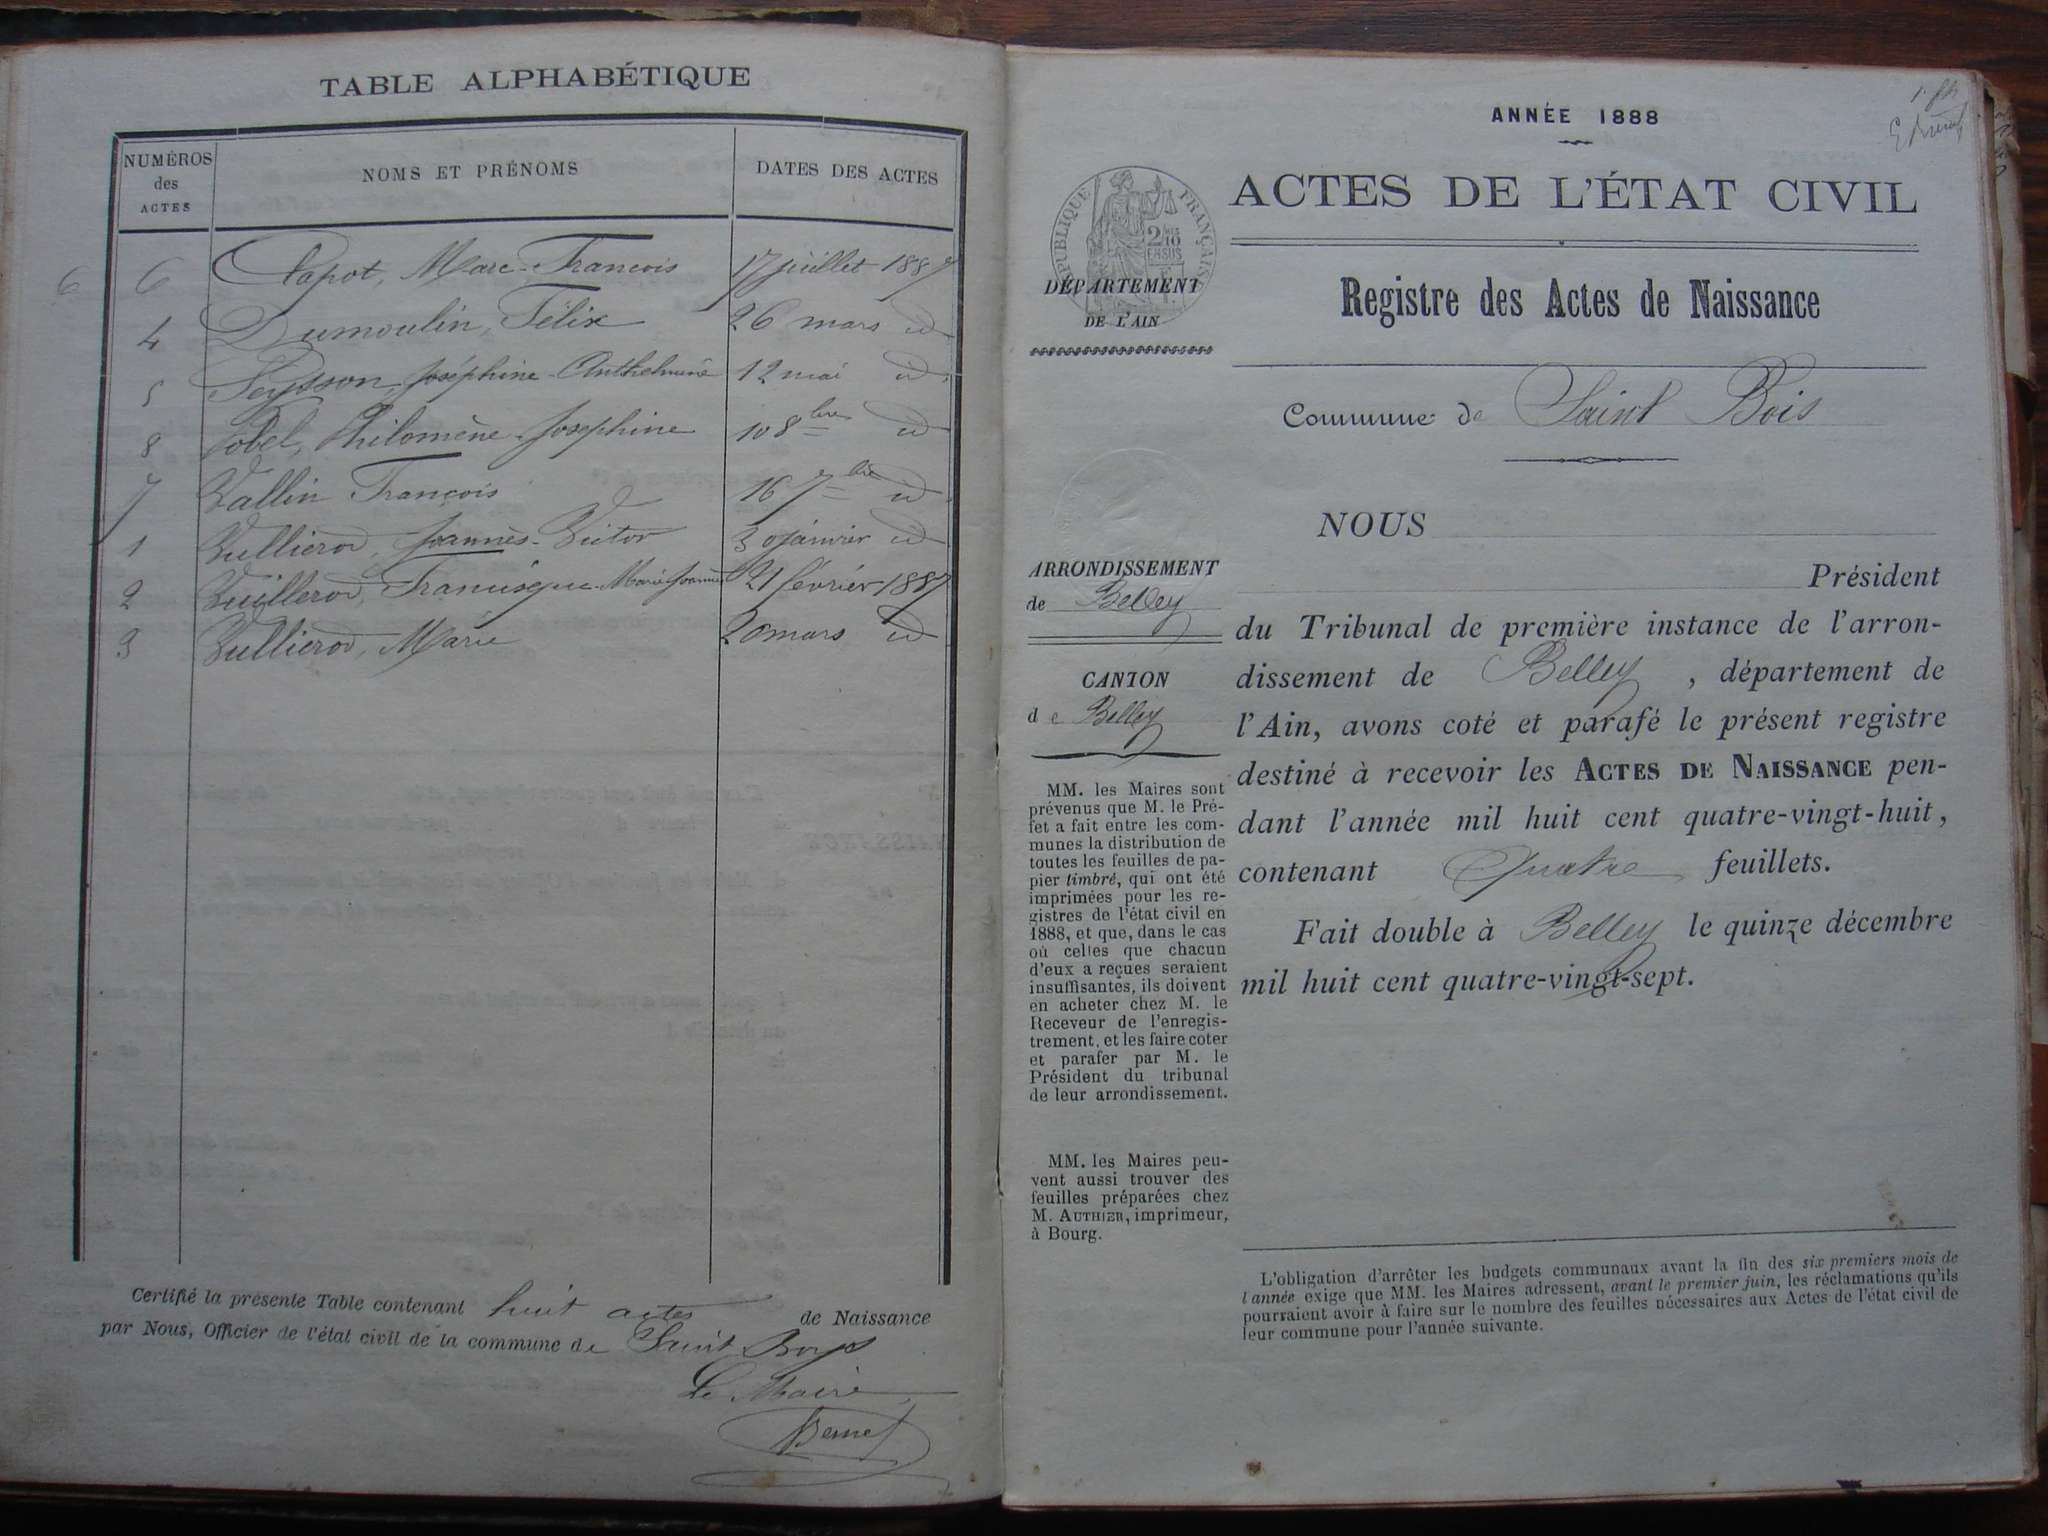 TABLE ALPHABÉTIQUE
NUMÉROS des ACTES NOMS ET PRÉNOMS DATES DES ACTES
6 6 Capot, Marc-François 17 juillet 1887
4 Dumoulin, Félix 26 mars id
5 Seysson, Joséphine-Anthelmine 12 mai id
8 Jobel, Philomène-Josephine 10 8bre id
7 Vallin François 16 7bre id
1 Vullierod, Joannès-Victor 30 janvier id
2 Vuillerod, Francisque-Marie-Joannès 21 février 1887
3 Vullierod, Marie 20 mars id
Certifié la présente Table contenant huit actes de Naissance
par Nous, Officier de l'état civil de la commune de Saint Boys
Le Maire
Bernet
ANNÉE 1888
ACTES DE L'ÉTAT CIVIL
RÉPUBLIQUE FRANÇAISE
2/10
EN SUS
DÉPARTEMENT
DE L'AIN
Registre des Actes de Naissance
Commune de Saint Bois
ARRONDISSEMENT
de Belley
CANTON
de Belley
MM. les Maires sont
prévenus que M. le Pré-
fet a fait entre les com-
munes la distribution de
toutes les feuilles de pa-
pier timbré, qui ont été
imprimées pour les re-
gistres de l'état civil en
1888, et que, dans le cas
où celles que chacun
d'eux a reçues seraient
insuffisantes, ils doivent
en acheter chez M. le
Receveur de l'enregis-
trement, et les faire coter
et parafer par M. le
Président du tribunal
de leur arrondissement.
MM. les Maires peu-
vent aussi trouver des
feuilles préparées chez
M. AUTHIER, imprimeur,
à Bourg.
NOUS
Président
du Tribunal de première instance de l'arron-
dissement de Belley, département de
l'Ain, avons coté et parafé le présent registre
destiné à recevoir les ACTES DE NAISSANCE pen-
dant l'année mil huit cent quatre-vingt-huit,
contenant Quatre feuillets.
Fait double à Belley le quinze décembre
mil huit cent quatre-vingt-sept.
L'obligation d'arrêter les budgets communaux avant la fin des six premiers mois de
l'année exige que MM. les Maires adressent, avant le premier juin, les réclamations qu'ils
pourraient avoir à faire sur le nombre des feuilles nécessaires aux Actes de l'état civil de
leur commune pour l'année suivante.